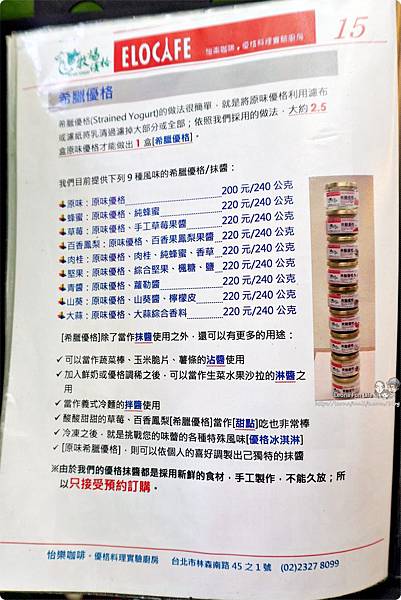 ELOCAFE
怡樂咖啡。優格料理實驗廚房
15
希臘優格
希臘優格(Strained Yogurt)的做法很簡單，就是將原味優格利用濾布
或濾紙將乳清過濾掉大部分或全部；依照我們採用的做法，大約 2.5
盒原味優格才能做出 1 盒[希臘優格]。
我們目前提供下列 9 種風味的希臘優格/抹醬：
原味：原味優格 200 元/240 公克
蜂蜜：原味優格、純蜂蜜 220 元/240 公克
草莓：原味優格、手工草莓果醬 220 元/240 公克
百香鳳梨：原味優格、百香果鳳梨果醬 220 元/240 公克
肉桂：原味優格、肉桂、純蜂蜜、香草 220 元/240 公克
堅果：原味優格、綜合堅果、楓糖、鹽 220 元/240 公克
青醬：原味優格、蘿勒醬 220 元/240 公克
山葵：原味優格、山葵醬、檸檬皮 220 元/240 公克
大蒜：原味優格、大蒜綜合香料 220 元/240 公克
[希臘優格]除了當作抹醬使用之外，還可以有更多的用途：
✓ 可以當作蔬菜棒、玉米脆片、薯條的沾醬使用
✓ 加入鮮奶或優格調稀之後，可以當作生菜水果沙拉的淋醬之
用
✓ 當作義式冷麵的拌醬使用
✓ 酸酸甜甜的草莓、百香鳳梨[希臘優格]當作[甜點]吃也非常棒
✓ 冷凍之後，就是挑戰您的味蕾的各種特殊風味[優格冰淇淋]
✓ [原味希臘優格]，則可以依個人的喜好調製出己獨特的抹醬
※由於我們的優格抹醬都是採用新鮮的食材，手工製作，不能久放；所
以只接受預約訂購。
怡樂咖啡。優格料理實驗廚房 台北市林森南路 45 之 1 號 (02)2327 8099